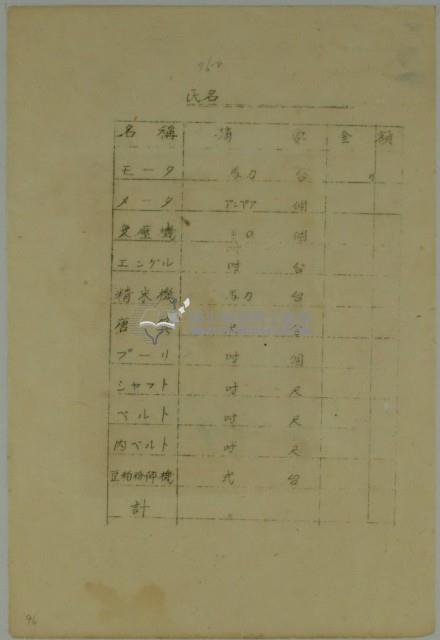 氏名
名 稱 金 額
モータ 馬力 台
メータ アンペア 個
変壓機
エンゲル 吋 台
精米機 馬力 台
唐
プーリ 吋 個
シャフト 吋 尺
ベルト 吋 尺
内ベルト 吋 尺
豆粕粉砕機 式 台
計
96